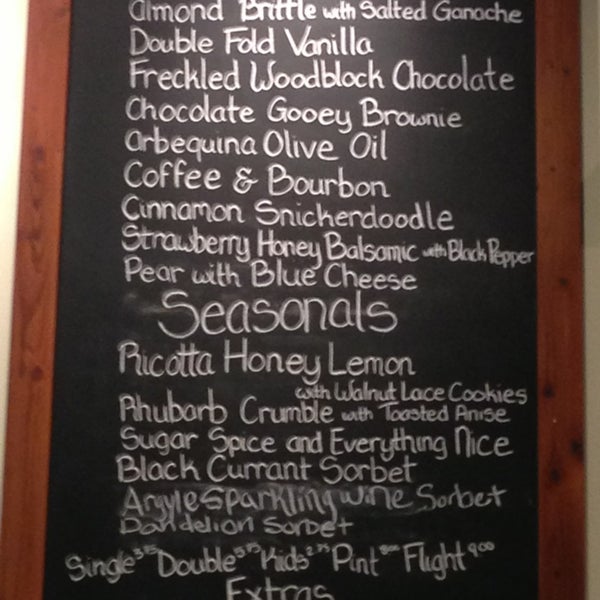 Almond Brittle with Salted Ganache
Double Fold Vanilla
Freckled Woodblock Chocolate
Chocolate Gooey Brownie
Arbequina Olive Oil
Coffee & Bourbon
Cinnamon Snickerdoodle
Strawberry Honey Balsamic with Black Pepper
Pear with Blue Cheese
Seasonals
Ricotta Honey Lemon
with Walnut Lace Cookies
Rhubarb Crumble with Toasted Anise
Sugar Spice and Everything Nice
Black Currant Sorbet
Argyle Sparkling Wine Sorbet
Dandelion Sorbet
Single Double Kids 2.75 Pint 8.00 Flight 9.00
Extras